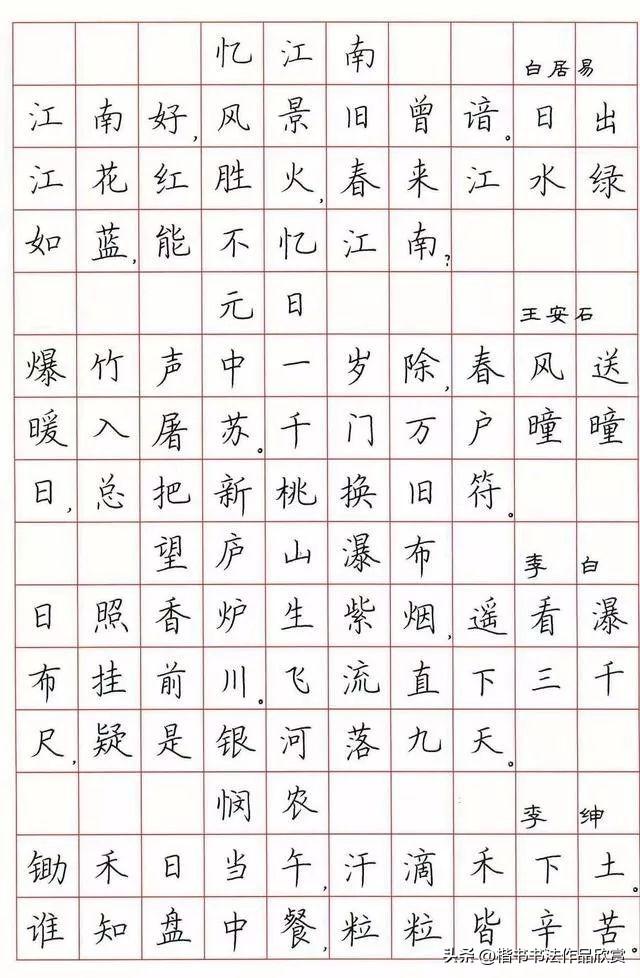 忆江南 白居易
江南好,风景旧曾谙。日出
江花红胜火,春来江水绿
如蓝,能不忆江南?
元日 王安石
爆竹声中一岁除,春风送
暖入屠苏。千门万户曈曈
日,总把新桃换旧符。
望庐山瀑布 李白
日照香炉生紫烟,遥看瀑
布挂前川。飞流直下三千
尺,疑是银河落九天。
悯农 李绅
锄禾日当午,汗滴禾下土。
谁知盘中餐,粒粒皆辛苦。
头条@楷书书法作品欣赏